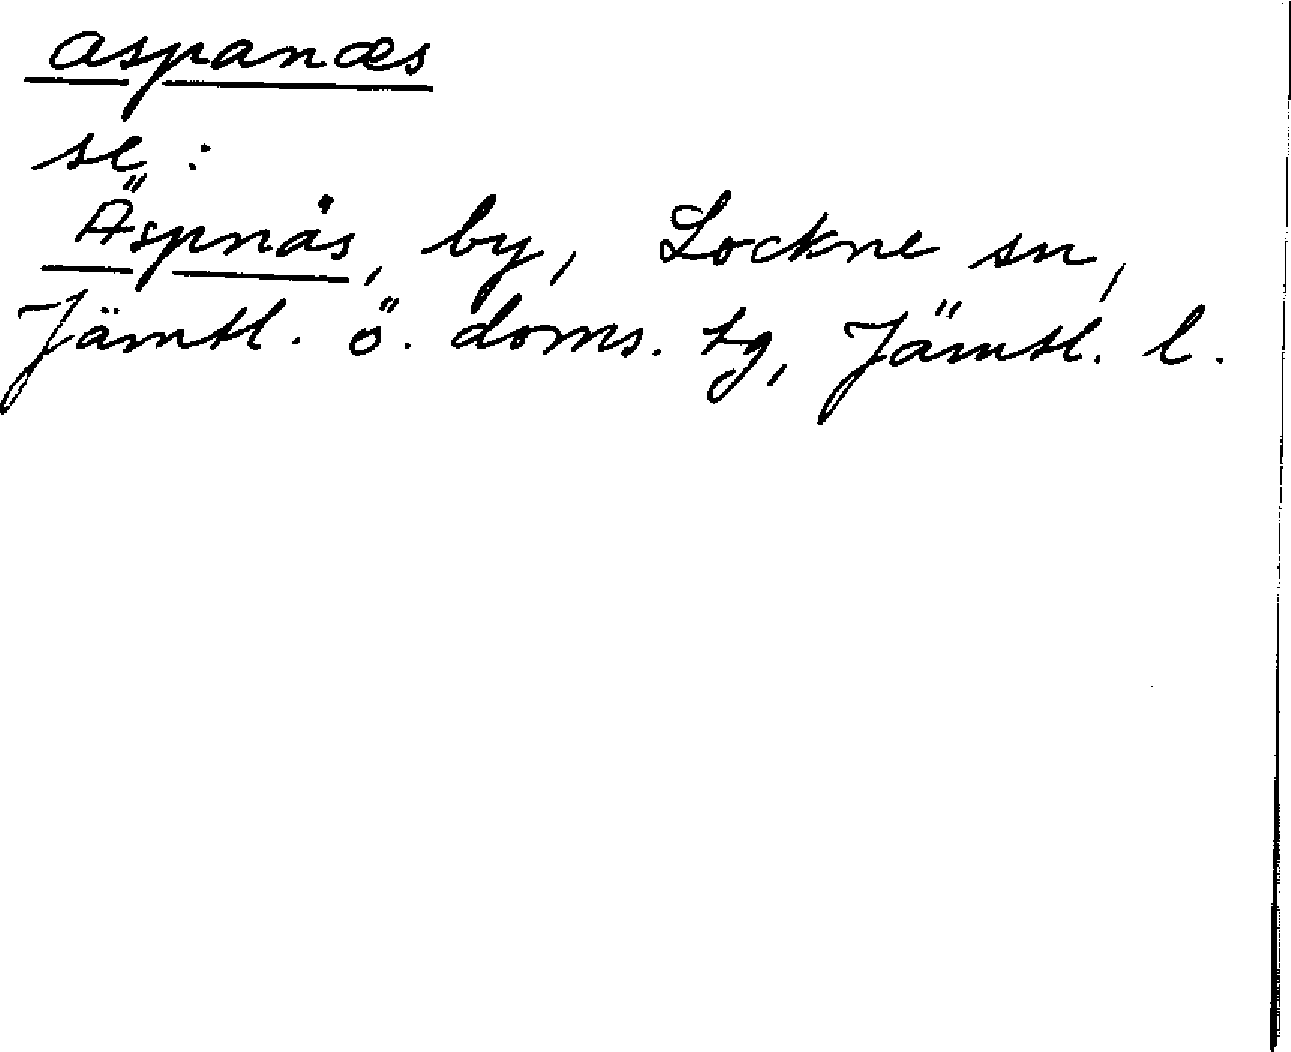 aspanæs
se :
Äspnäs, by, Lockne sn,
Jämtl. ö. doms. tg, Jämtl. l.